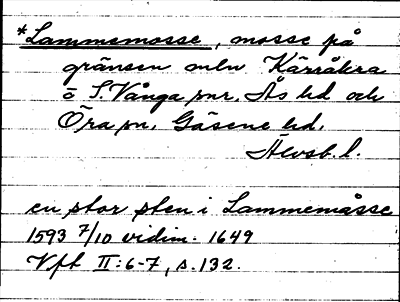 *Lammemosse, mosse på
gränsen mlw Kärråkra
o S. Vånga snr, Ås hd och
Öra sn, Gäsene hd,
Älvsb. l.
en stor sten i Lammemåsse
1593 7/10 vidim. 1649
Vft II:6-7, s. 132.